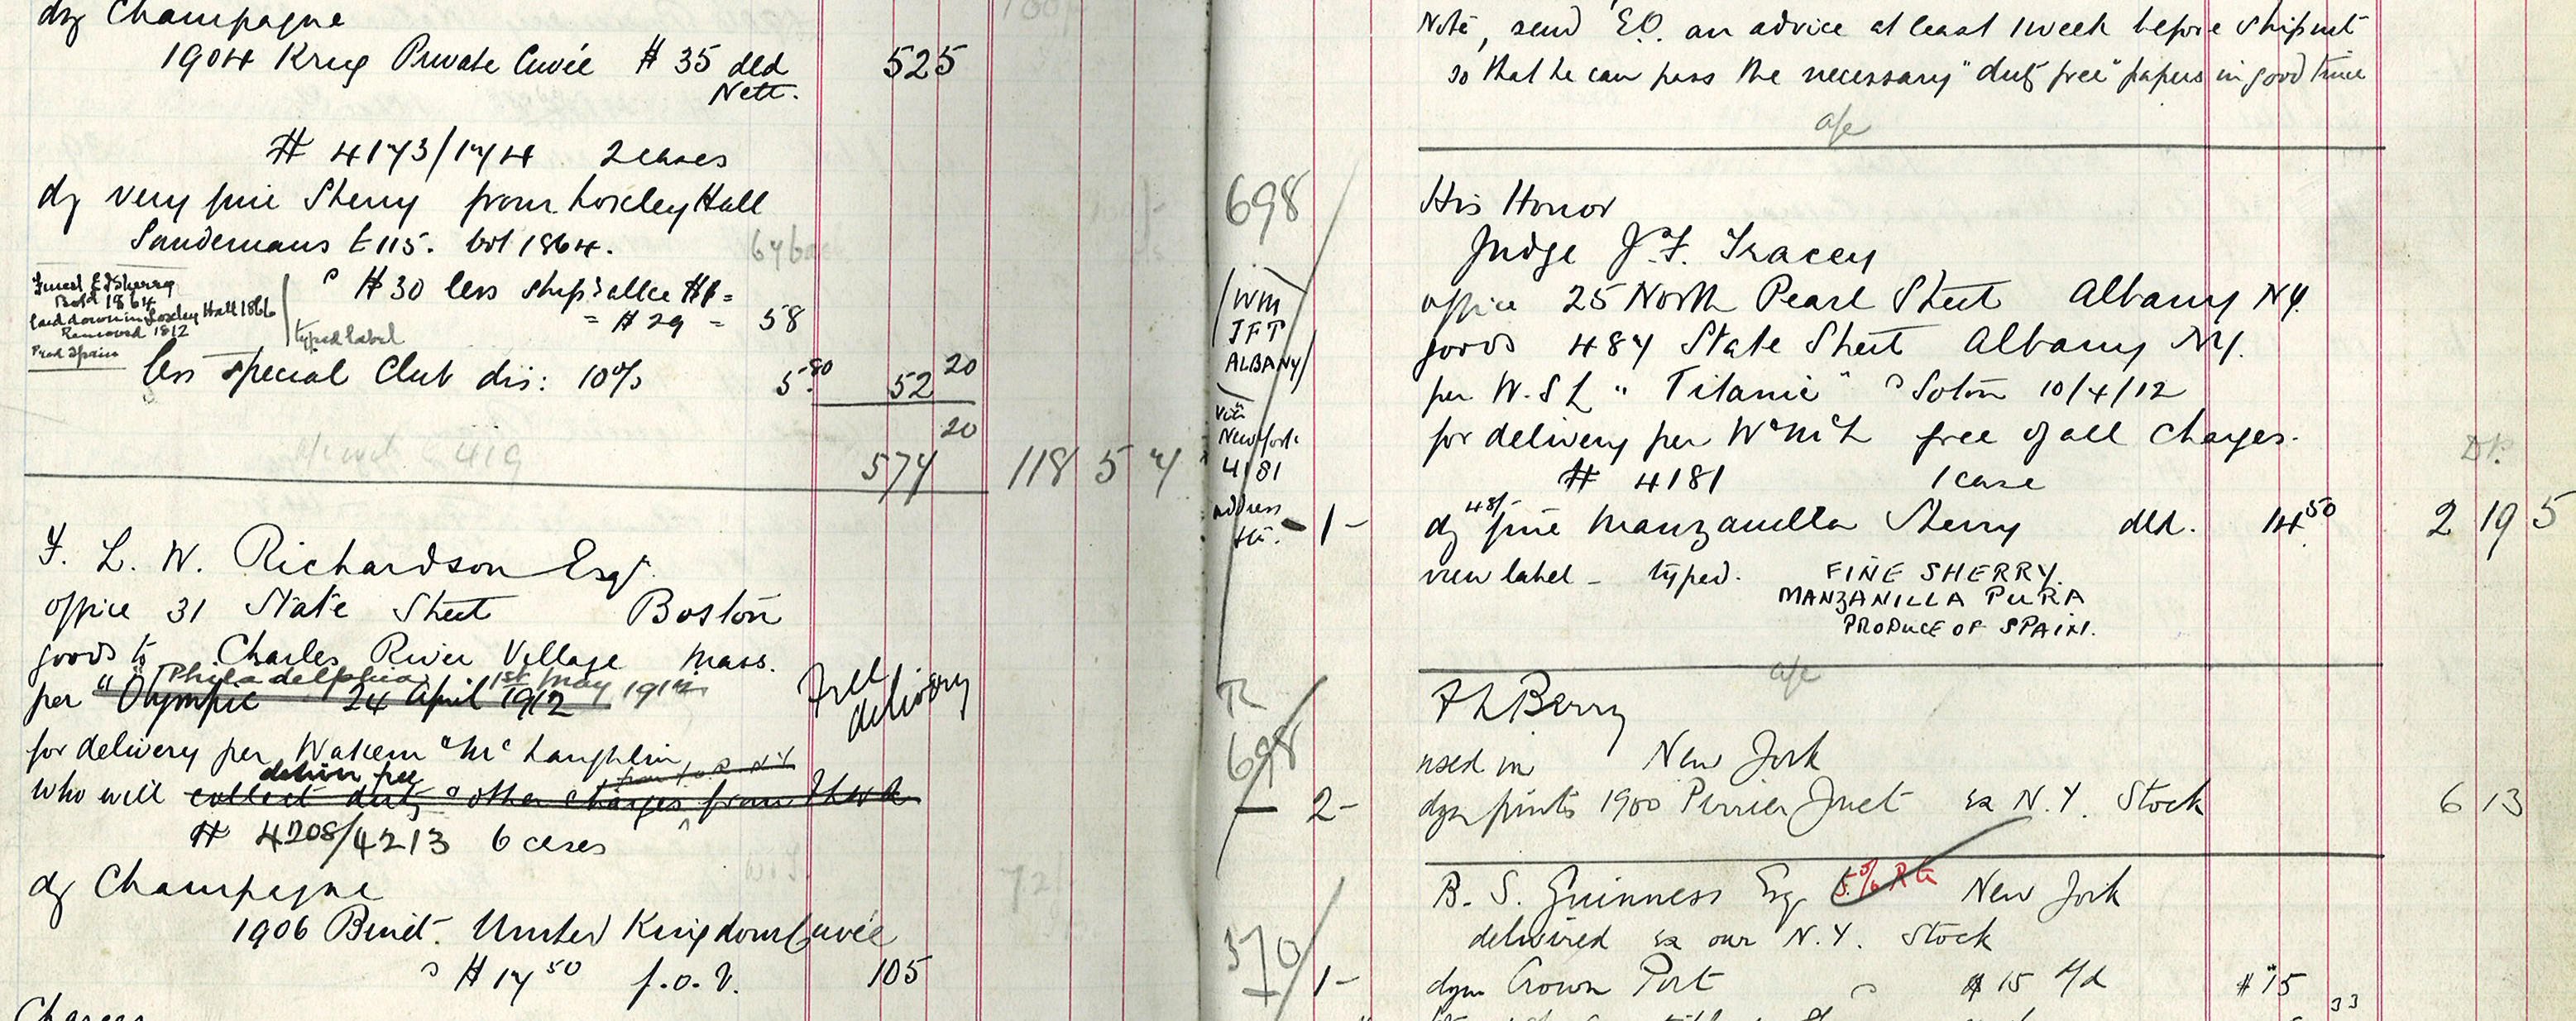 dz Champagne
1904 Krug Private Cuvée $ 35 dld 525
Nett.
# 4173/174 2 cases
dz very fine Sherry from Loxley Hall
Sandemans £115. bot 1864.
@ $30 less ship: allce $1 =
= $29 = 58
Finest E I Sherry
Botd 1864
laid down in Loxley Hall 1866
Removed 1912
Prod Spain
typed label
less special Club dis: 10% 5.80 52 20
574 20 118 5 7
F. L. W. Richardson Esqr.
office 31 State Street Boston
goods to Charles River Village Mass.
Philadelphia 1st May 1912
per "Olympic 24 April 1912
Free delivery
for delivery per Wakem & Mc Laughlin
deliver free
who will collect duty & other charges from FLWR
# 4208/4213 6 cases
dz Champagne
1906 Binet. United Kingdom Cuvée
@ $ 17 50 f.o.b. 105
Charges
Note, send EO. an advice at least 1 week before shipmt
so that he can pass the necessary "duty free" papers in good time
698
His Honor
Judge J. F. Tracey
office 25 North Pearl Street Albany NY.
goods 487 State Street Albany NY.
per W.S L "Titanic" @ Soton 10/4/12
for delivery per W & Mc L free of all charges.
# 4181 1 case
WM
JFT
ALBANY
via
New York
4181
address
1- dz 48/- fine Manzanilla Sherry dld. 14 50 2 19 5
view label - typed. FINE SHERRY.
MANZANILLA PURA
PRODUCE OF SPAIN.
F L Berry
698
used in New York
2- dzn pints 1900 Perrier Jouet ex N.Y. Stock 6 13
B. S. Guinness Esq 5% New York
delivered ex our N.Y. Stock
370
1- dzn Crown Port @ $ 15 $ 15
33